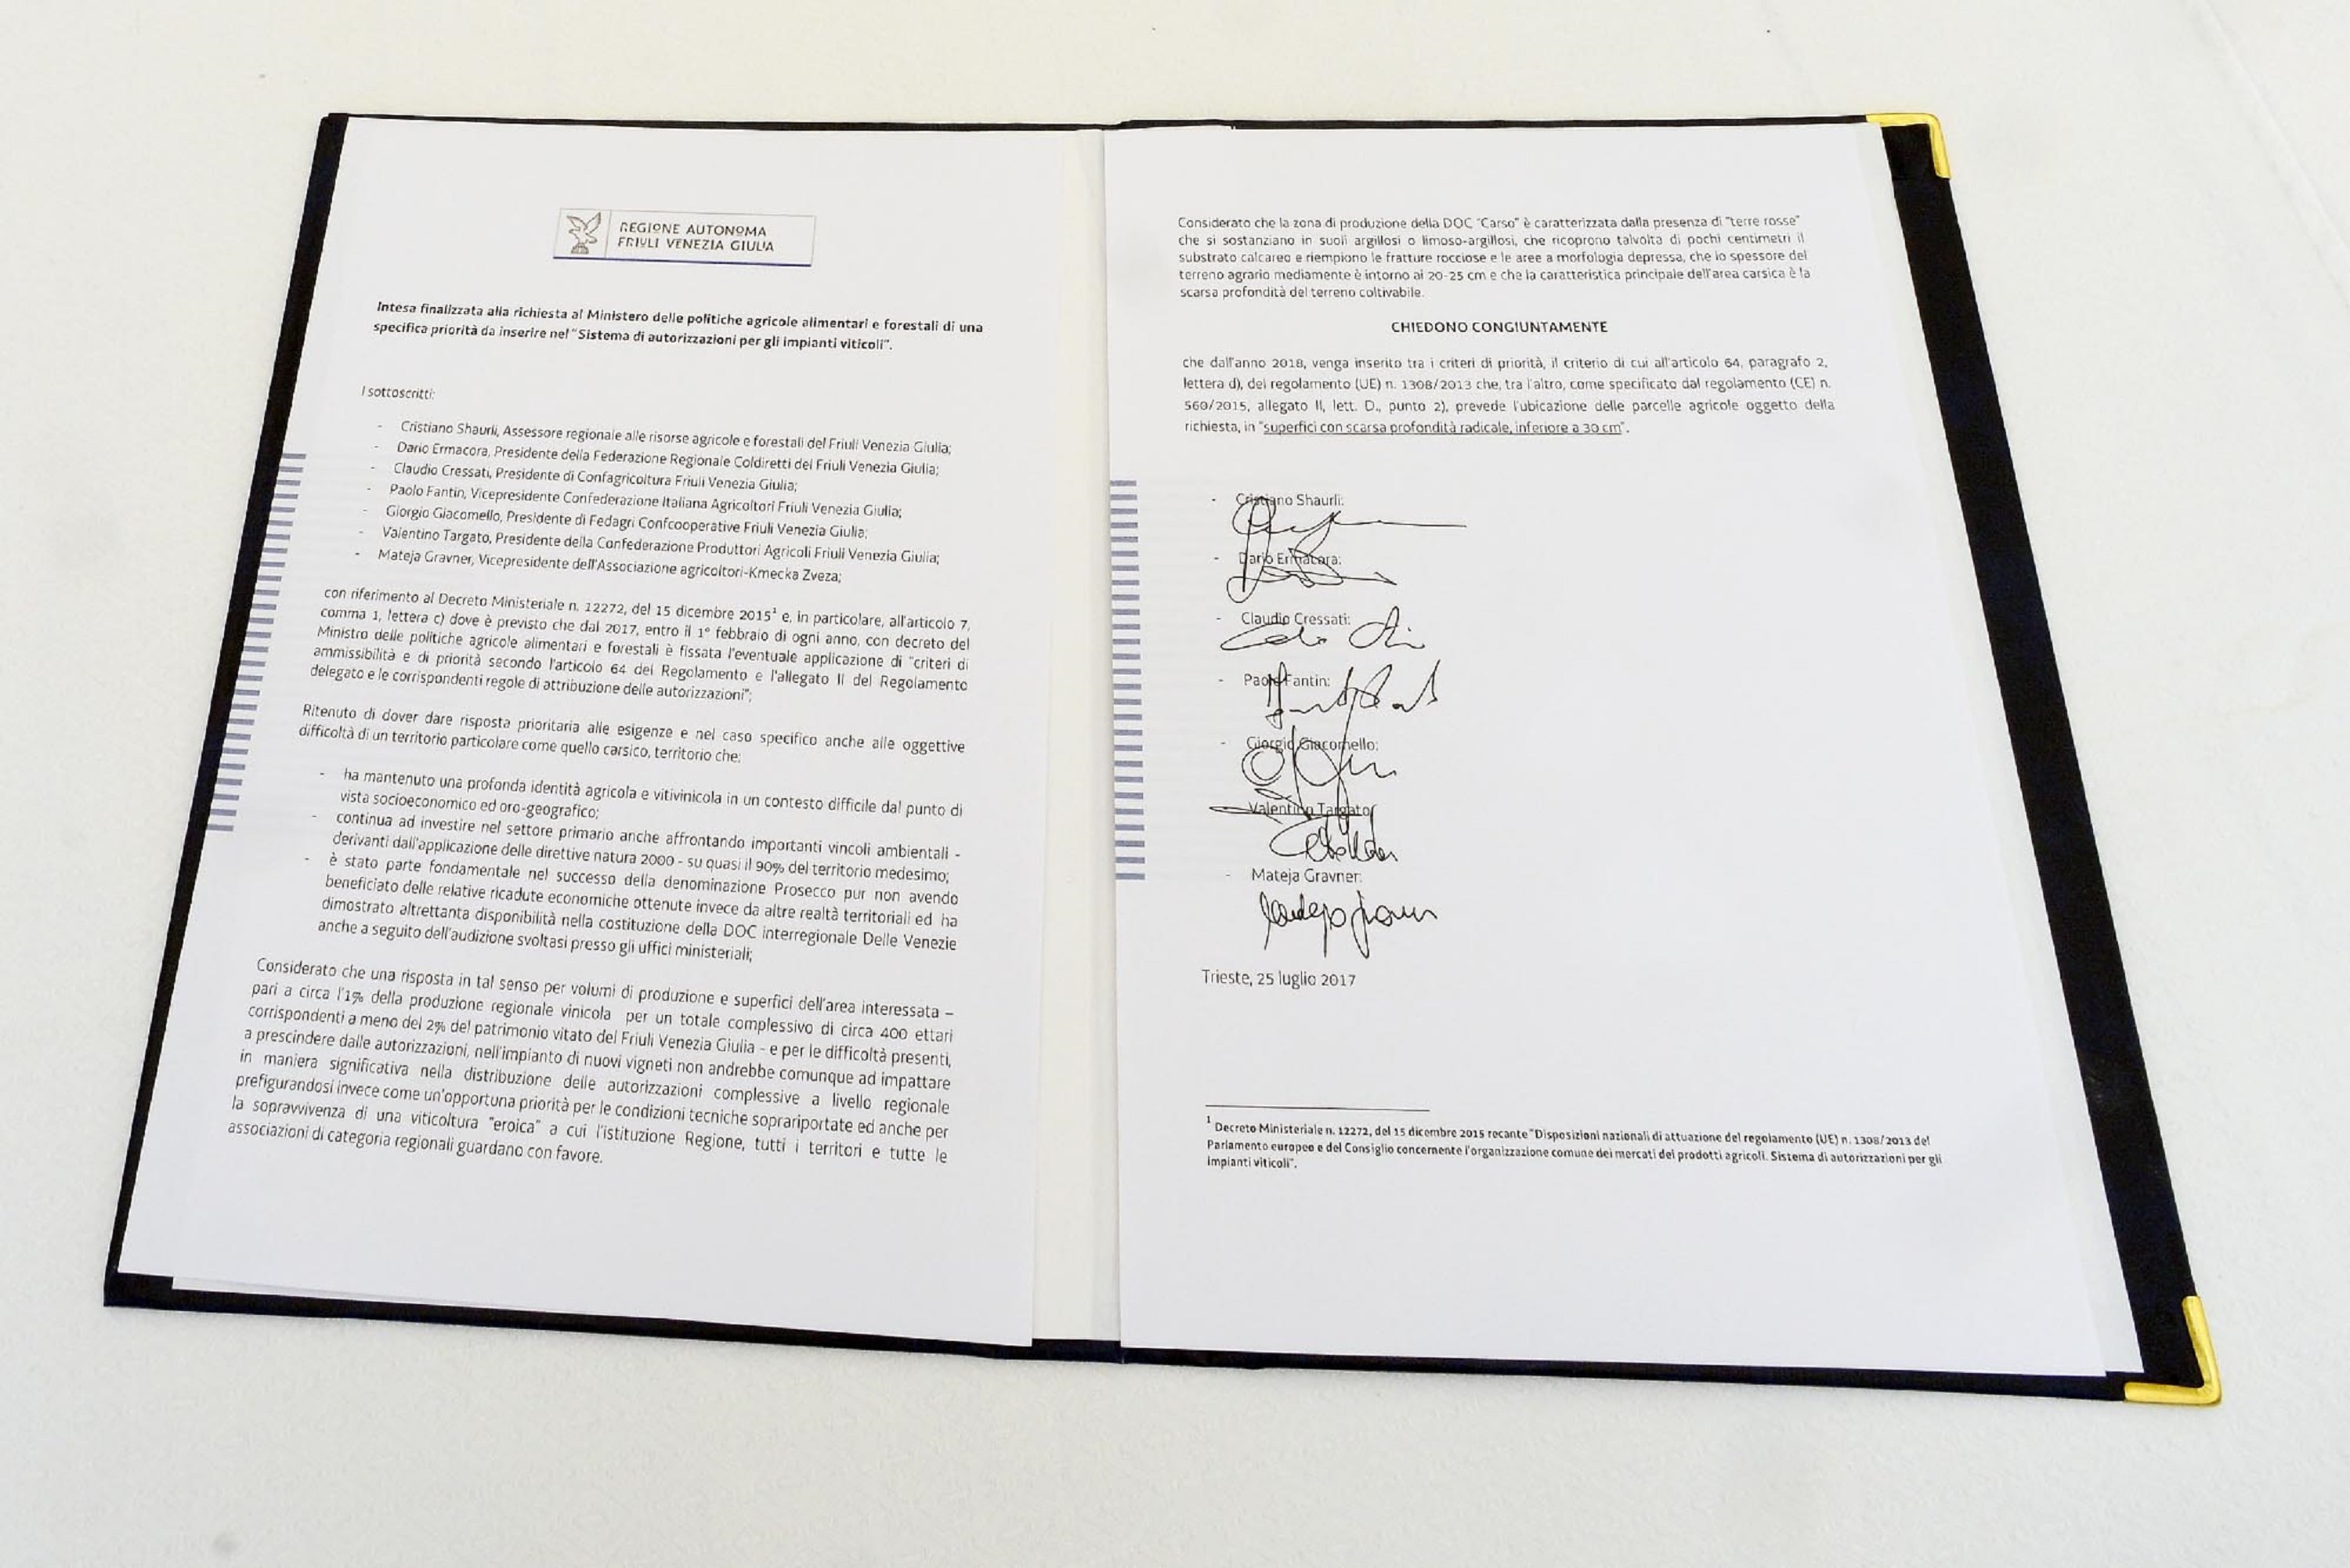 REGIONE AUTONOMA
FRIULI VENEZIA GIULIA
Intesa finalizzata alla richiesta al Ministero delle politiche agricole alimentari e forestali di una
specifica priorità da inserire nel "Sistema di autorizzazioni per gli impianti viticoli".
I sottoscritti:
- Cristiano Shaurli, Assessore regionale alle risorse agricole e forestali del Friuli Venezia Giulia;
- Dario Ermacora, Presidente della Federazione Regionale Coldiretti del Friuli Venezia Giulia;
- Claudio Cressati, Presidente di Confagricoltura Friuli Venezia Giulia;
- Paolo Fantin, Vicepresidente Confederazione Italiana Agricoltori Friuli Venezia Giulia;
- Giorgio Giacomello, Presidente di Fedagri Confcooperative Friuli Venezia Giulia;
- Valentino Targato, Presidente della Confederazione Produttori Agricoli Friuli Venezia Giulia;
- Mateja Gravner, Vicepresidente dell'Associazione agricoltori-Kmecka Zveza;
con riferimento al Decreto Ministeriale n. 12272, del 15 dicembre 2015¹ e, in particolare, all'articolo 7,
comma 1, lettera c) dove è previsto che dal 2017, entro il 1° febbraio di ogni anno, con decreto del
Ministro delle politiche agricole alimentari e forestali è fissata l'eventuale applicazione di "criteri di
ammissibilità e di priorità secondo l'articolo 64 del Regolamento e l'allegato II del Regolamento
delegato e le corrispondenti regole di attribuzione delle autorizzazioni";
Ritenuto di dover dare risposta prioritaria alle esigenze e nel caso specifico anche alle oggettive
difficoltà di un territorio particolare come quello carsico, territorio che:
- ha mantenuto una profonda identità agricola e vitivinicola in un contesto difficile dal punto di
vista socioeconomico ed oro-geografico;
- continua ad investire nel settore primario anche affrontando importanti vincoli ambientali -
derivanti dall'applicazione delle direttive natura 2000 - su quasi il 90% del territorio medesimo;
- è stato parte fondamentale nel successo della denominazione Prosecco pur non avendo
beneficiato delle relative ricadute economiche ottenute invece da altre realtà territoriali ed ha
dimostrato altrettanta disponibilità nella costituzione della DOC interregionale Delle Venezie
anche a seguito dell'audizione svoltasi presso gli uffici ministeriali;
Considerato che una risposta in tal senso per volumi di produzione e superfici dell'area interessata –
pari a circa l'1% della produzione regionale vinicola per un totale complessivo di circa 400 ettari
corrispondenti a meno del 2% del patrimonio vitato del Friuli Venezia Giulia - e per le difficoltà presenti,
a prescindere dalle autorizzazioni, nell'impianto di nuovi vigneti non andrebbe comunque ad impattare
in maniera significativa nella distribuzione delle autorizzazioni complessive a livello regionale
prefigurandosi invece come un'opportuna priorità per le condizioni tecniche soprariportate ed anche per
la sopravvivenza di una viticoltura "eroica" a cui l'istituzione Regione, tutti i territori e tutte le
associazioni di categoria regionali guardano con favore.
Considerato che la zona di produzione della DOC "Carso" è caratterizzata dalla presenza di "terre rosse"
che si sostanziano in suoli argillosi o limoso-argillosi, che ricoprono talvolta di pochi centimetri il
substrato calcareo e riempiono le fratture rocciose e le aree a morfologia depressa, che lo spessore del
terreno agrario mediamente è intorno ai 20-25 cm e che la caratteristica principale dell'area carsica è la
scarsa profondità del terreno coltivabile.
CHIEDONO CONGIUNTAMENTE
che dall'anno 2018, venga inserito tra i criteri di priorità, il criterio di cui all'articolo 64, paragrafo 2,
lettera d), del regolamento (UE) n. 1308/2013 che, tra l'altro, come specificato dal regolamento (CE) n.
560/2015, allegato II, lett. D., punto 2), prevede l'ubicazione delle parcelle agricole oggetto della
richiesta, in "superfici con scarsa profondità radicale, inferiore a 30 cm".
- Cristiano Shaurli:
- Dario Ermacora:
- Claudio Cressati:
- Paolo Fantin:
- Giorgio Giacomello:
- Valentino Targato:
- Mateja Gravner:
Trieste, 25 luglio 2017
¹ Decreto Ministeriale n. 12272, del 15 dicembre 2015 recante "Disposizioni nazionali di attuazione del regolamento (UE) n. 1308/2013 del
Parlamento europeo e del Consiglio concernente l'organizzazione comune dei mercati dei prodotti agricoli. Sistema di autorizzazioni per gli
impianti viticoli".